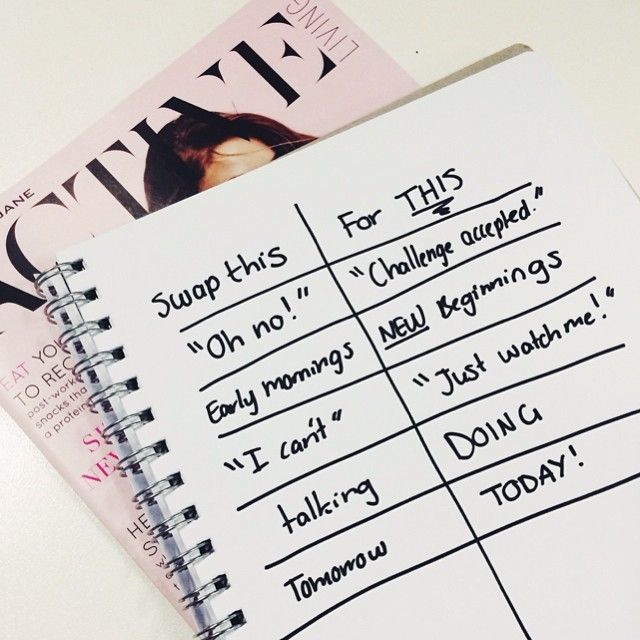 ACTIVE
LIVING
JANE
EAT YOU
TO REC
post-work
snacks tha
a protein
NEW
HE
Swap this For THIS
"Oh no!" "Challenge accepted."
Early mornings NEW Beginnings
"I can't" "Just watch me!"
talking DOING
Tomorrow TODAY!